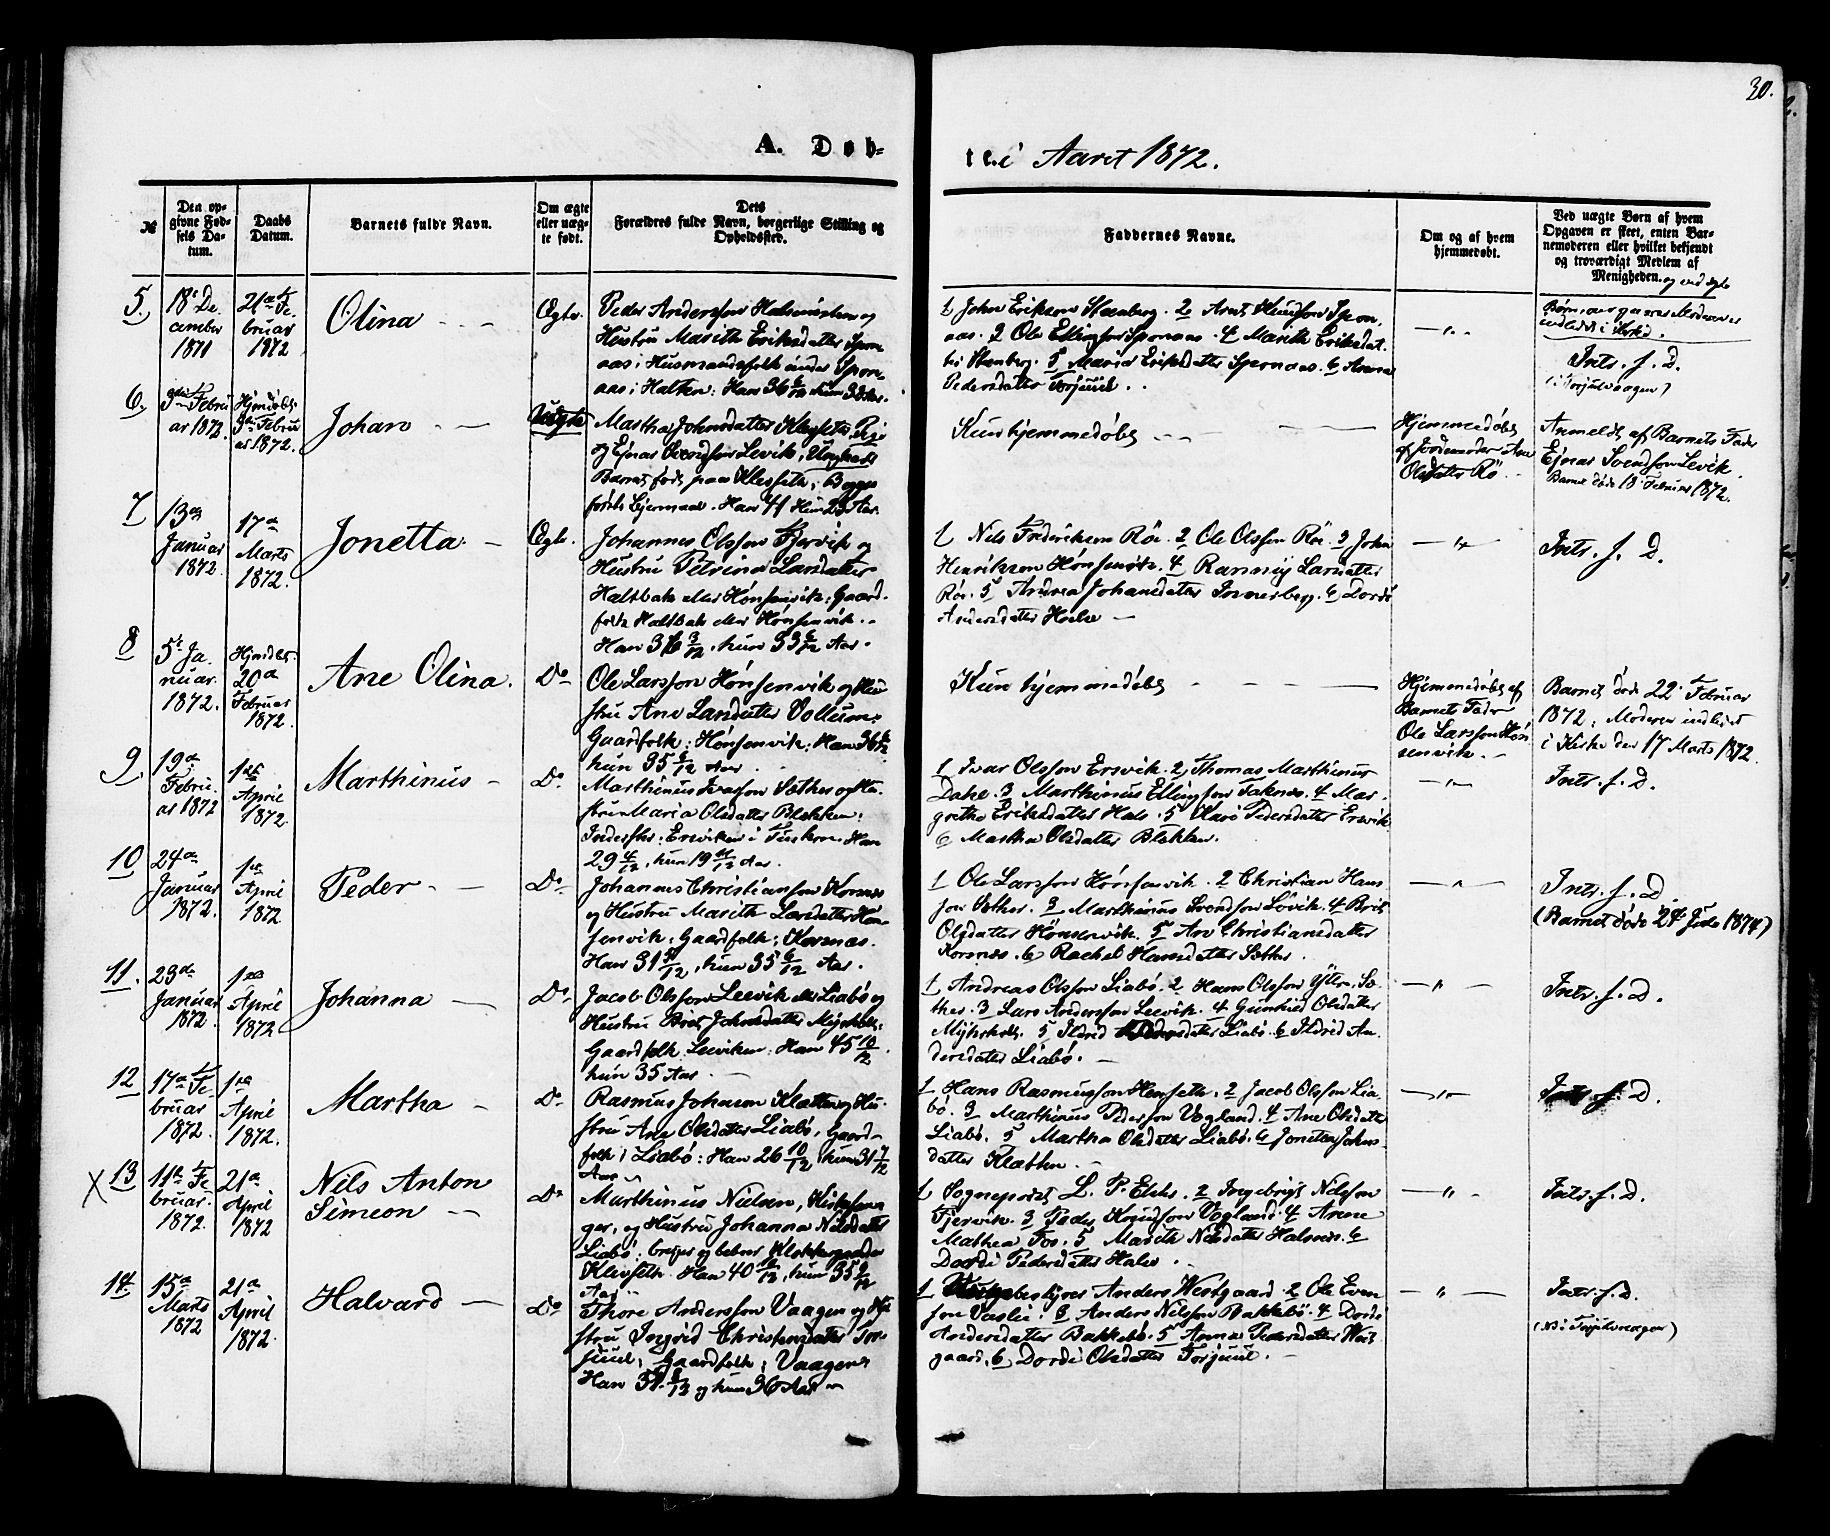 30.
A. Døb-
te. i Aaret 1872.
№
Den op-
givne Fød-
sels Da-
tum.
Daabs
Datum.
Barnets fulde Navn.
Om ægte
eller uæg-
te født.
Dets
Forældres fulde Navn, borgerlige Stilling og
Opholdssted.
Faddernes Navne.
Om og af hvem
hjemmedøbt.
Ved uægte Børn af hvem
Opgaven er skeet, enten Bar-
nemoderen eller hvilket bekjendt
og troværdigt Medlem af
Menigheden. og ved ægte
5.
18 De
cember
1871
21de Fe
bruar
1872
Olina
Ægte.
Peder Andersson og
Hustru Marith Eriksdatter
aas; Husmandsfolk under
aas i Halsen: Han 36
1 John Eriksen Stenberg. 2
aas. 3 Ole Ellingsen. 4 Marith Eriksdat
ter Stenberg. 5 Eriksdatter. 6
Pedersdatter Torjuul.
Børn, om og naar Moderen er
indledt i Kirke.
Intr. f. D.
(i Torjulvaagen)
6.
Febru
ar 1872.
Hjemdøbt
Febru
ar 1872.
Johan
Uægte
Martha Johnsdatter Pige
og Ejnar Svendsøn Levik, Ungkarl
Barnet født paa
Lejermaal. Han 41
Kun hjemmedøbt
Hjemmedøbt
af Jordemoder Ane
Olsdatter Rø
Anmeldt af Barnets Fader
Ejnar Svendsøn Levik.
Barnet døde 18 Februar 1872.
7
13de
Januar
1872.
17de
Marts
1872.
Jonetta
Ægte.
Johannes Olsson Fjervik og
Hustru Petrina Larsdatter
Haltbak eller Hønsenvik: Gaard-
folk Haltbak eller Hønsenvik.
Han 36 3/12, hun 33 6/12 Aar.
1 Nils Frederiksen Røe. 2 Ole Olsson Røe. 3 John
Henriksen Hønsenvik. 4 Larsdatter
Røe. 5 Andrea Johansdatter. 6 Dordi
Andersdatter
Intr. f. D.
8
5te Ja
nuar.
1872.
Hjemdøbt
20de
Februar
1872.
Ane Olina.
Do
Ole Larsson Hønsenvik og Hu
stru Ane Larsdatter Vollum:
Gaardfolk: Hønsenvik: Han 36
hun 35 Aar.
Kun hjemmedøbt
Hjemmedøbt af
Barnets Fader
Ole Larsson Høn
senvik.
Barnet døde 22 Februar
1872; Moderen indledet
i Kirke den 17 Marts 1872.
9
19de
Febru
ar 1872
1ste
April
1872.
Marthinus
Do
Marthinus Ivarsøn Sæther og Hu
stru Maria Olsdatter Blekken:
Inderster: Ersviken i Han
29 4/12, hun 19 Aar.
1 Ivar Olsson Ersvik. 2 Thomas Marthinus
Dahl. 3 Marthinus Ellingsøn. 4 Mar
grethe Eriksdatter Hals. 5 Kari Pedersdatter Ersvik
6 Martha Olsdatter Blekken.
Intr. f. D.
10
24de
Januar
1872.
1ste
April
1872
Peder
Do
Johannes Christiansøn Korsnæs
og Hustru Marith Larsdatter Høn
senvik: Gaardfolk: Korsnæs.
Han 31, hun 35 6/12 Aar.
1 Ole Larsson Hønsenvik. 2 Christian Hans
søn Sæther. 3 Marthinus Svendsøn Løvik. 4 Brit
Olsdatter Hønsenvik. 5 Ane Christiansdatter
Korsnæs. 6 Rachel Hansdatter Sæther.
Intr. f. D.
(Barnet døde 24 1874)
11.
23de
Januar
1872.
1ste
April
1872
Johanna
Do
Jacob Olsson Leevik eller Liabø og
Hustru Brit Johnsdatter
Gaardfolk: Leeviken: Han 45 10/12
hun 35 Aar.
1 Andreas Olsson Liabø. 2 Hans Olsson Ytter Sæ
ther. 3 Lars Andersson Leevik. 4 Gunhild Olsdatter
5 Ildrid Liabø. 6 Ildrid An
dersdatter Liabø.
Intr. f. D.
12
17de Fe
bruar
1872.
1ste
April
1872.
Martha
Do
Rasmus Johnson Kletten og Hu
stru Ane Olsdatter Liabø, Gaard-
folk, Liabø: Han 26 10/12, hun 31 7/12
Aar
1 Hans Rasmusson Henseth. 2 Jacob Olsson Lia
bø. 3 Marthinus Pedersson Vogland. 4 Ane Olsdatter
Liabø. 5 Martha Olsdatter Liabø. 6 Jonetta Johns-
datter Kletten
Intr. f. D.
X 13
11te Fe
bruar.
1872.
21de
April
1872
Nils Anton
Simeon
Do
Marthinus Nielsen, Kirkesan
ger, og Hustru Johanna Nilsdatter
Liabø: bruger og beboer Klokkergaarden
Klevseth. Han 40, hun 35
Aar
1 Sogneprest L. P. 2 Ingebrigt Nilsson
Fjervik. 3 Peder Knudsøn Vogland. 4 Anne
Mathea Fos. 5 Marith Nilsdatter Halsnes. 6
Dordi Pedersdatter Halse.
Intr. f. D.
14
15de
Marts
1872
21de
April
1872.
Halvard
Do
Thore Andersson Vaagen og Hu
stru Ingrid Christensdatter Tor-
juul; Gaardfolk; Vaagen
Han og hun 36 Aar
1 Anders Westgaard. 2 Ole Even
søn Vaslie. 3 Anders Nilsson Bakkebø. 4 Dordi
Andersdatter Bakkebø. 5 Anna Pedersdatter West
gaard, 6 Dordi Olsdatter Torjuul.
Intr. f. D.
(i Torjulvaagen)